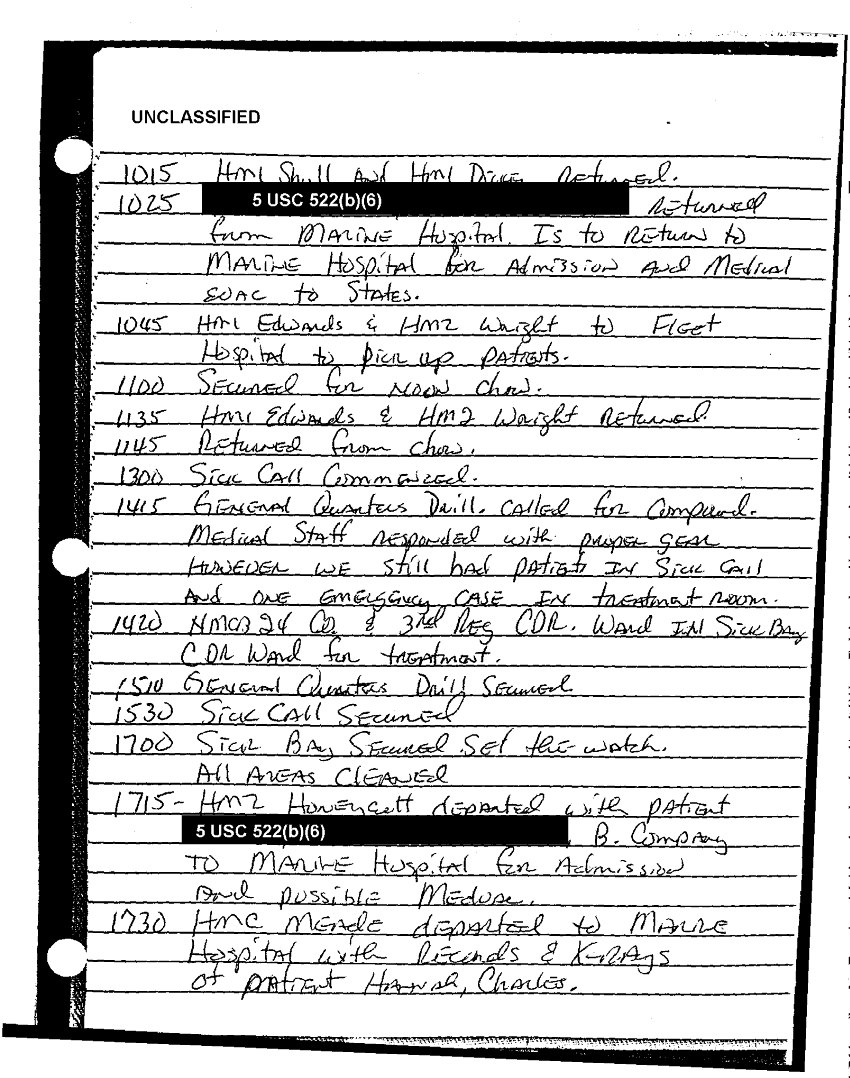 UNCLASSIFIED
1015 HM1 Shull And HM1 Returned.
1025 5 USC 522(b)(6) Returned
from MARINE Hospital. Is to Return to
MARINE Hospital for Admission and Medical
EVAC to States.
1045 HM1 Edwards & HM2 Wright to Fleet
Hospital to pick up PATIENTS.
1100 Secured for NOON chow.
1135 HM1 Edwards & HM2 Wright Returned.
1145 Returned from chow.
1300 Sick CAll Commenced.
1415 GENERAL Quarters Drill. CAlled for Compound.
Medical Staff Responded with proper gear
HOWEVER WE still had patients IN Sick Call
AND ONE EMERGENCY CASE IN treatment room.
1420 NMCB 24 CO. & 3rd Reg CDR. Ward IN Sick Bay
CDR Ward for treatment.
1510 General Quarters Drill Secured
1530 Sick CALL Secured
1700 Sick BAy Secured Set the watch.
All AREAS CLEANED
1715- HM2 Honeycutt departed with patient
5 USC 522(b)(6) B. Company
TO MARINE Hospital for Admission
And possible Medvac.
1730 HMC MEADE departed to MARINE
Hospital with Records & X-RAys
of patient , Charles.